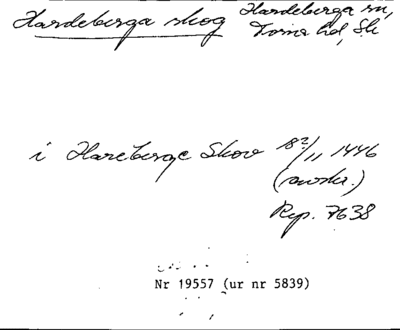 Hardeberga skog Hardeberga sn,
Torna hd, Sk
i Hareberge Skov 18?/11 1446
(avskr.)
Rep. 7638
Nr 19557 (ur nr 5839)